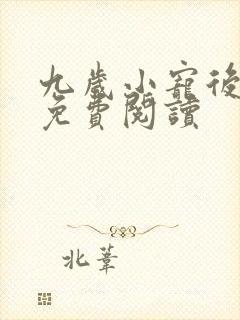 九歲小寵後
免費閱讀
北葦